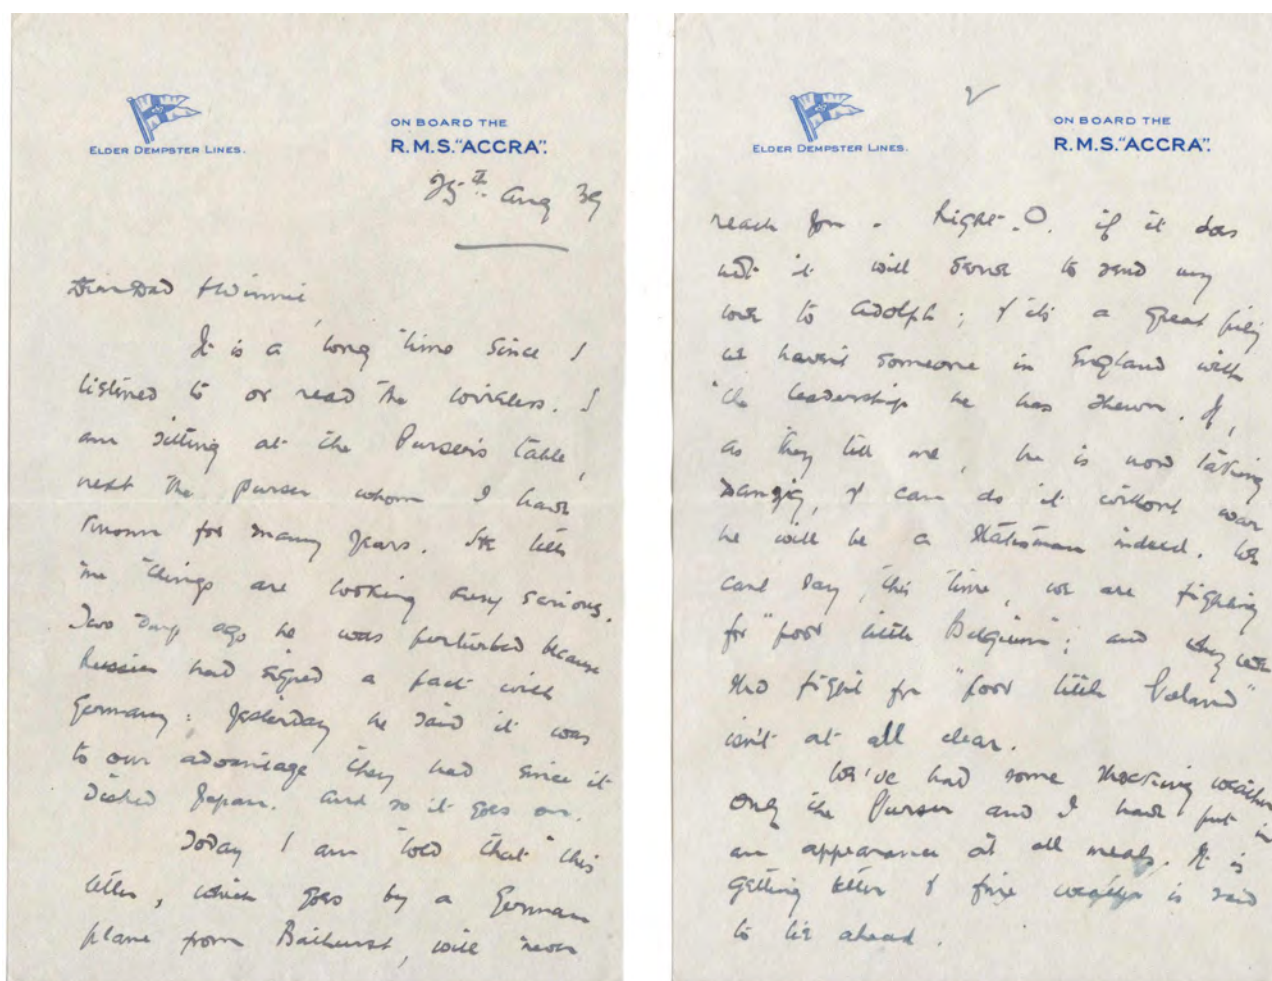 ELDER DEMPSTER LINES.
ON BOARD THE
R.M.S. "ACCRA".
25th Aug 39
Dear Dad & Winnie,
It is a long time since I
listened to or read the wireless. I
am sitting at the Purser's table,
next the purser whom I have
known for many years. He tells
me things are looking very serious.
Two days ago he was perturbed because
Russia had signed a pact with
Germany; yesterday he said it was
to our advantage they had since it
dished Japan. And so it goes on.
Today I am told that this
letter, which goes by a German
plane from Bathurst, will never
2
ELDER DEMPSTER LINES.
ON BOARD THE
R.M.S. "ACCRA".
reach you. Right-O. if it does
not it will serve to send my
love to Adolph; & it's a great pity
we haven't someone in England with
the leadership he has shewn. If,
as they tell me, he is now taking
Danzig, & can do it without war
he will be a statesman indeed. We
cant say, this time, we are fighting
for "poor little Belgium"; and why we
shd fight for "poor little Poland"
isn't at all clear.
We've had some shocking weather
only the Purser and I have put in
an appearance at all meals. It is
getting better & fine weather is said
to lie ahead.